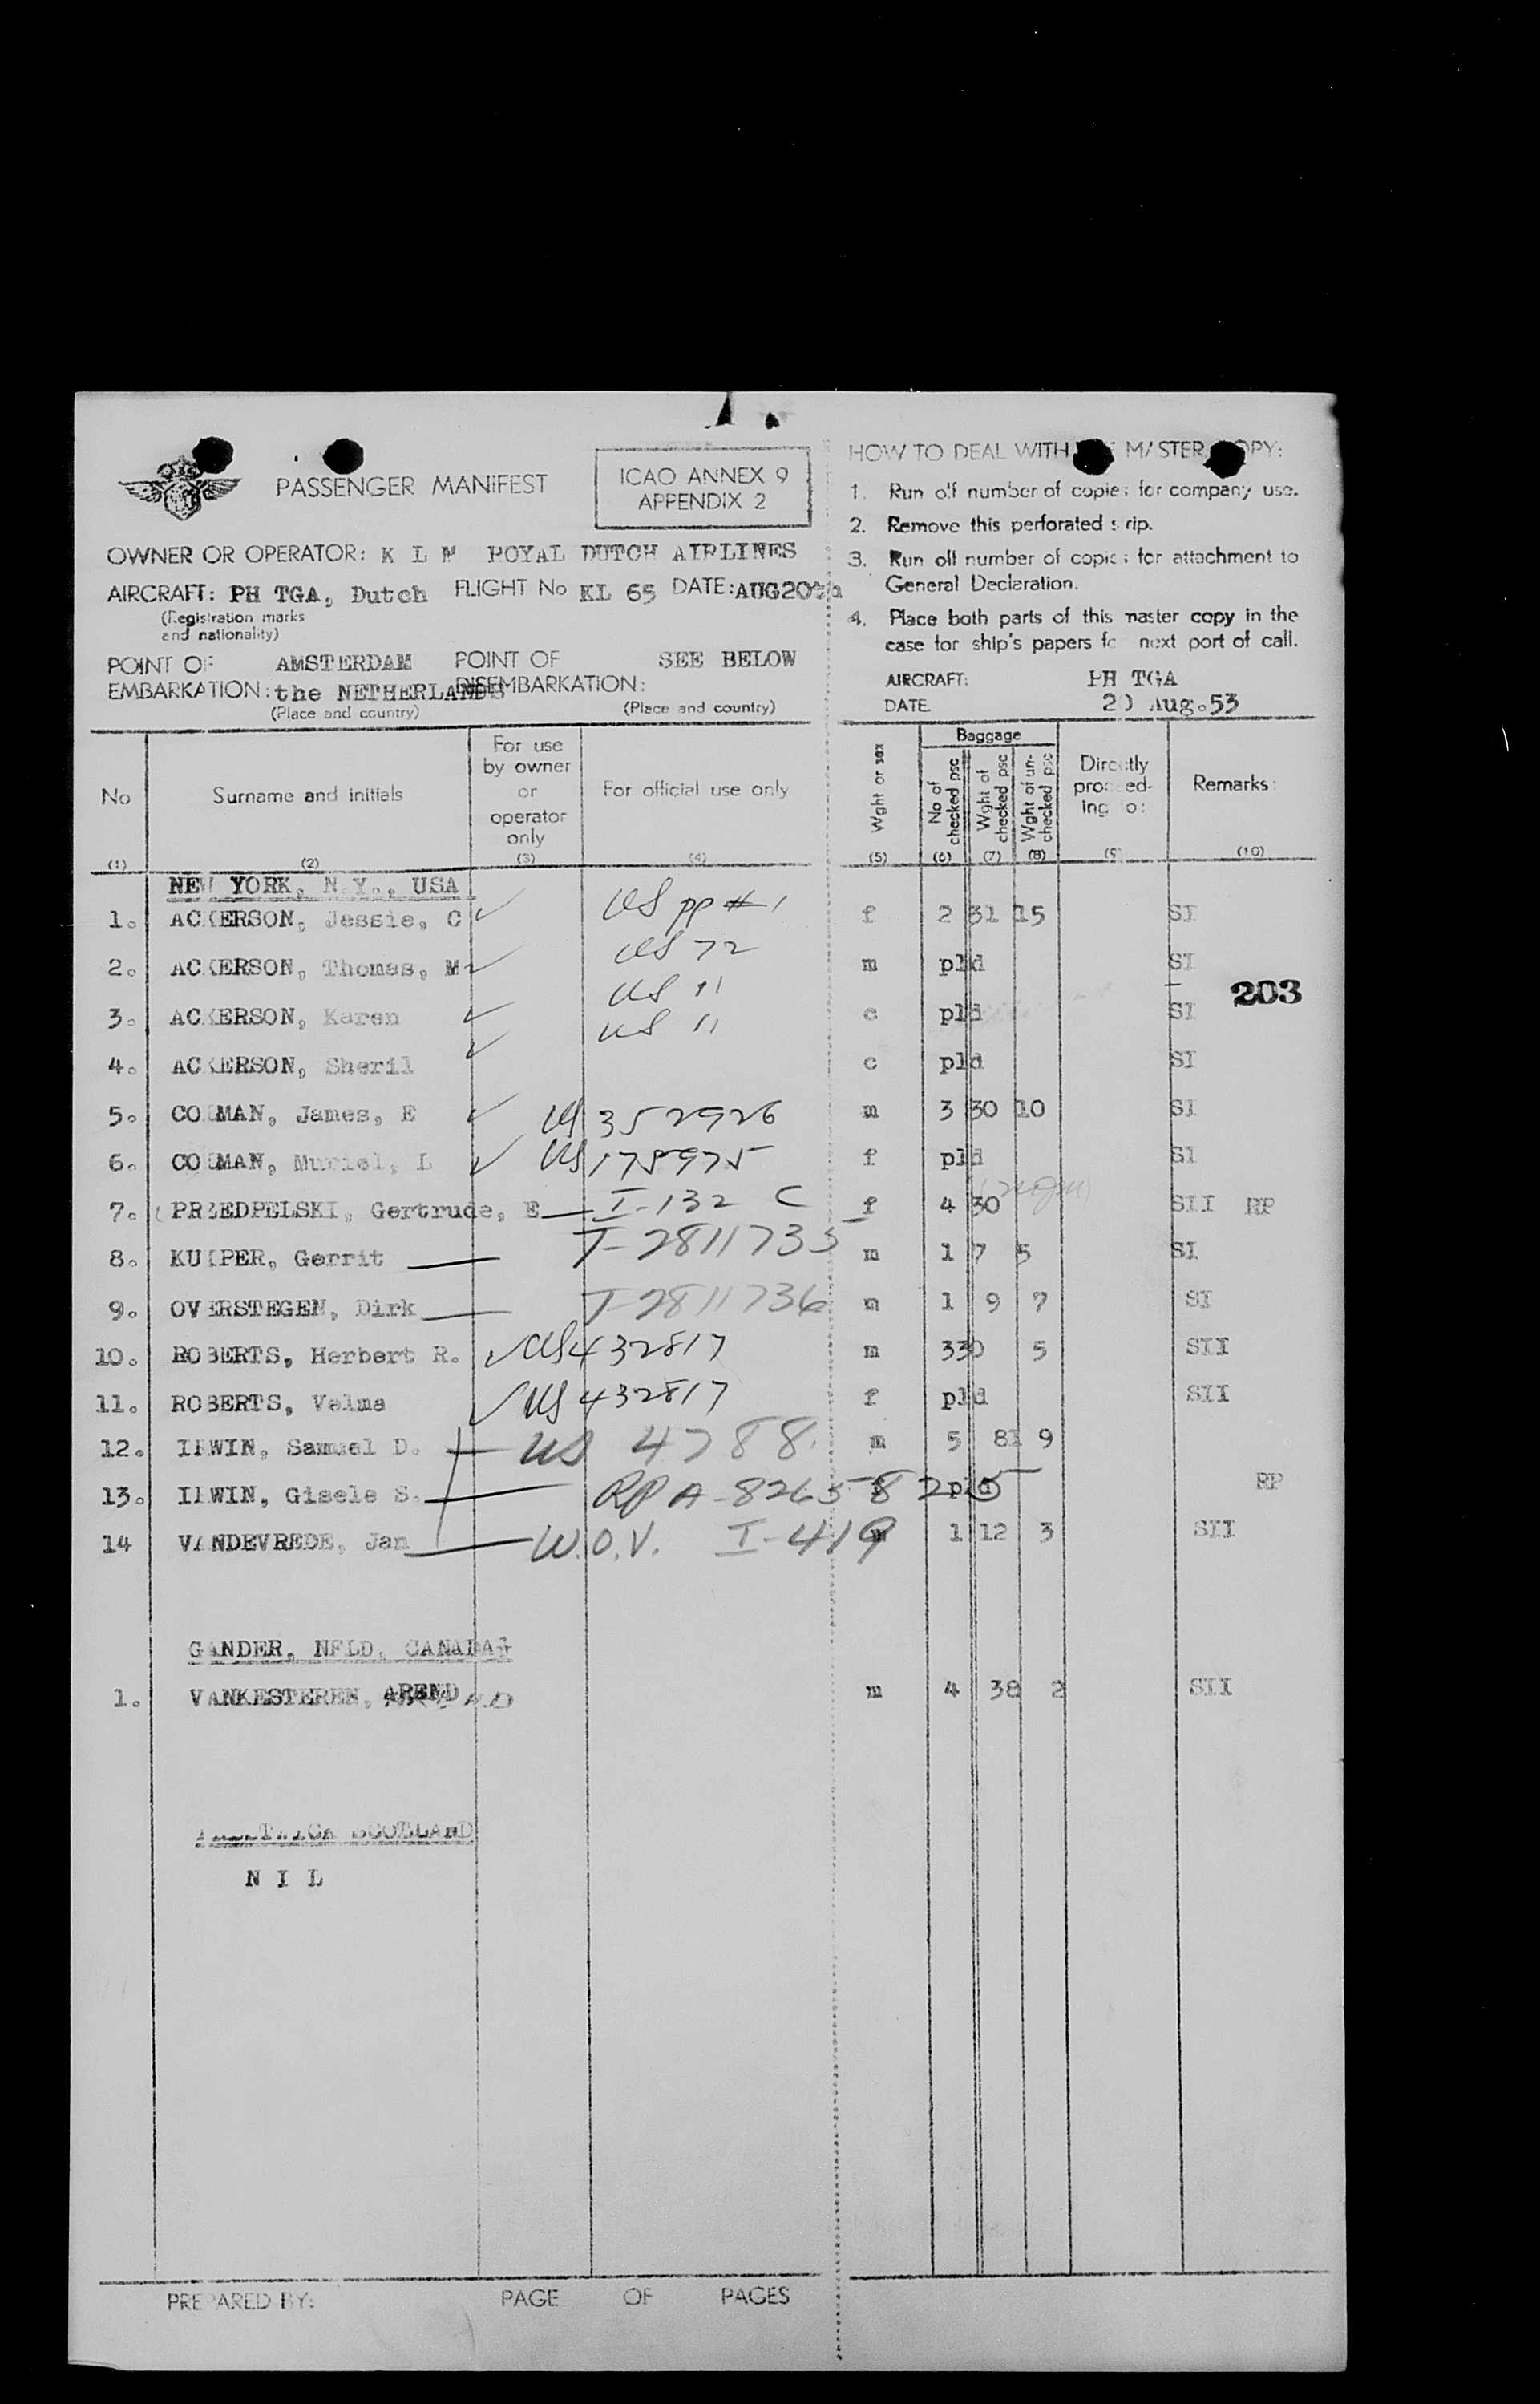 PASSENGER MANIFEST
ICAO ANNEX 9
APPENDIX 2
OWNER OR OPERATOR: K L M ROYAL DUTCH AIRLINES
AIRCRAFT: PH TGA, Dutch FLIGHT No KL 65 DATE: AUG20th
(Registration marks
and nationality)
POINT OF AMSTERDAM POINT OF SEE BELOW
EMBARKATION: the NETHERLANDS DISEMBARKATION:
(Place and country) (Place and country)
HOW TO DEAL WITH MASTER COPY:
1. Run off number of copies for company use.
2. Remove this perforated strip.
3. Run off number of copies for attachment to
General Declaration.
4. Place both parts of this master copy in the
case for ship's papers for next port of call.
AIRCRAFT: PH TGA
DATE. 20 Aug.53
No Surname and initials For use by owner or operator only For official use only Wght or sex Baggage No of checked psc Wght of checked psc Wght of un-checked psc Directly proceed-ing to: Remarks:
(1) (2) (3) (4) (5) (6) (7) (8) (9) (10)
NEW YORK, N.Y., USA
1. ACKERSON, Jessie, C ✓ US pp # 1 f 2 31 15 SI
2. ACKERSON, Thomas, M ✓ US 72 m pld SI
203
3. ACKERSON, Karen ✓ US 11 c pld SI
4. ACKERSON, Sheril ✓ US 11 c pld SI
5. COMAN, James, E ✓ US 352926 m 3 30 10 SI
6. COMAN, Muriel, L ✓ US 178975 f pld SI
7. PRZEDPELSKI, Gertrude, E I-132 C f 4 30 SII RP
8. KUIPER, Gerrit T-2811735 m 1 7 5 SI
9. OVERSTEGEN, Dirk T-2811736 m 1 9 7 SI
10. ROBERTS, Herbert R. ✓ US 432817 m 330 5 SII
11. ROBERTS, Velma ✓ US 432817 f pld SII
12. IRWIN, Samuel D. US 4788. m 5 81 9
13. IRWIN, Gisele S. RP A-8265825 pld RP
14 VANDEVREDE, Jan W.O.V. I-419 m 1 12 3 SII
GANDER, NFLD, CANADA
1. VANKESTEREN, AREND m 4 38 2 SII
SCOTLAND
N I L
PREPARED BY: PAGE OF PAGES